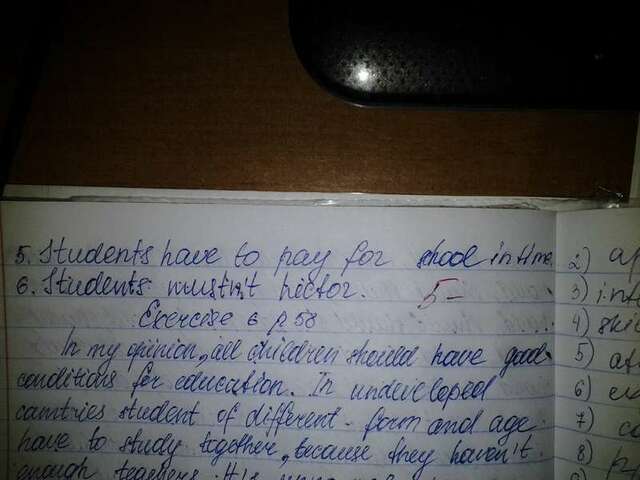 5. Students have to pay for shool in time
6. Students mustn't hector.
5-
Exercise 6 p 58
In my opinion, all children should have good
conditions for education. In undeveloped
cantries student of different form and age
have to study together, because they haven't
enough teachers. It's
2)
3) int
4) ski
5) at
6)
7) co
8)